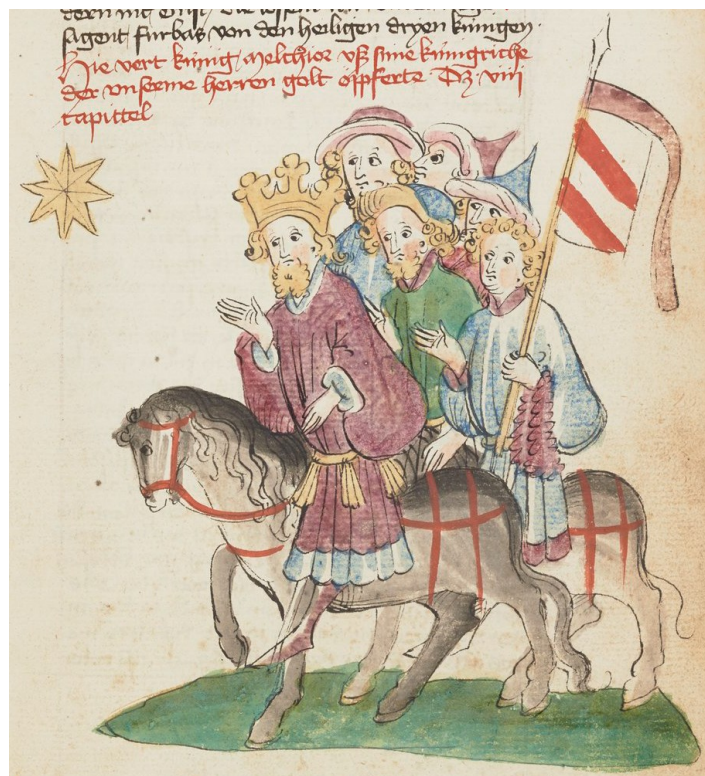 sagent fúrbas von den heiligen dryen kúnigen.
Hie vert kúnig melchior vß sime kúnigriche
der vnserme herren golt opfferte Dz viii
capittel